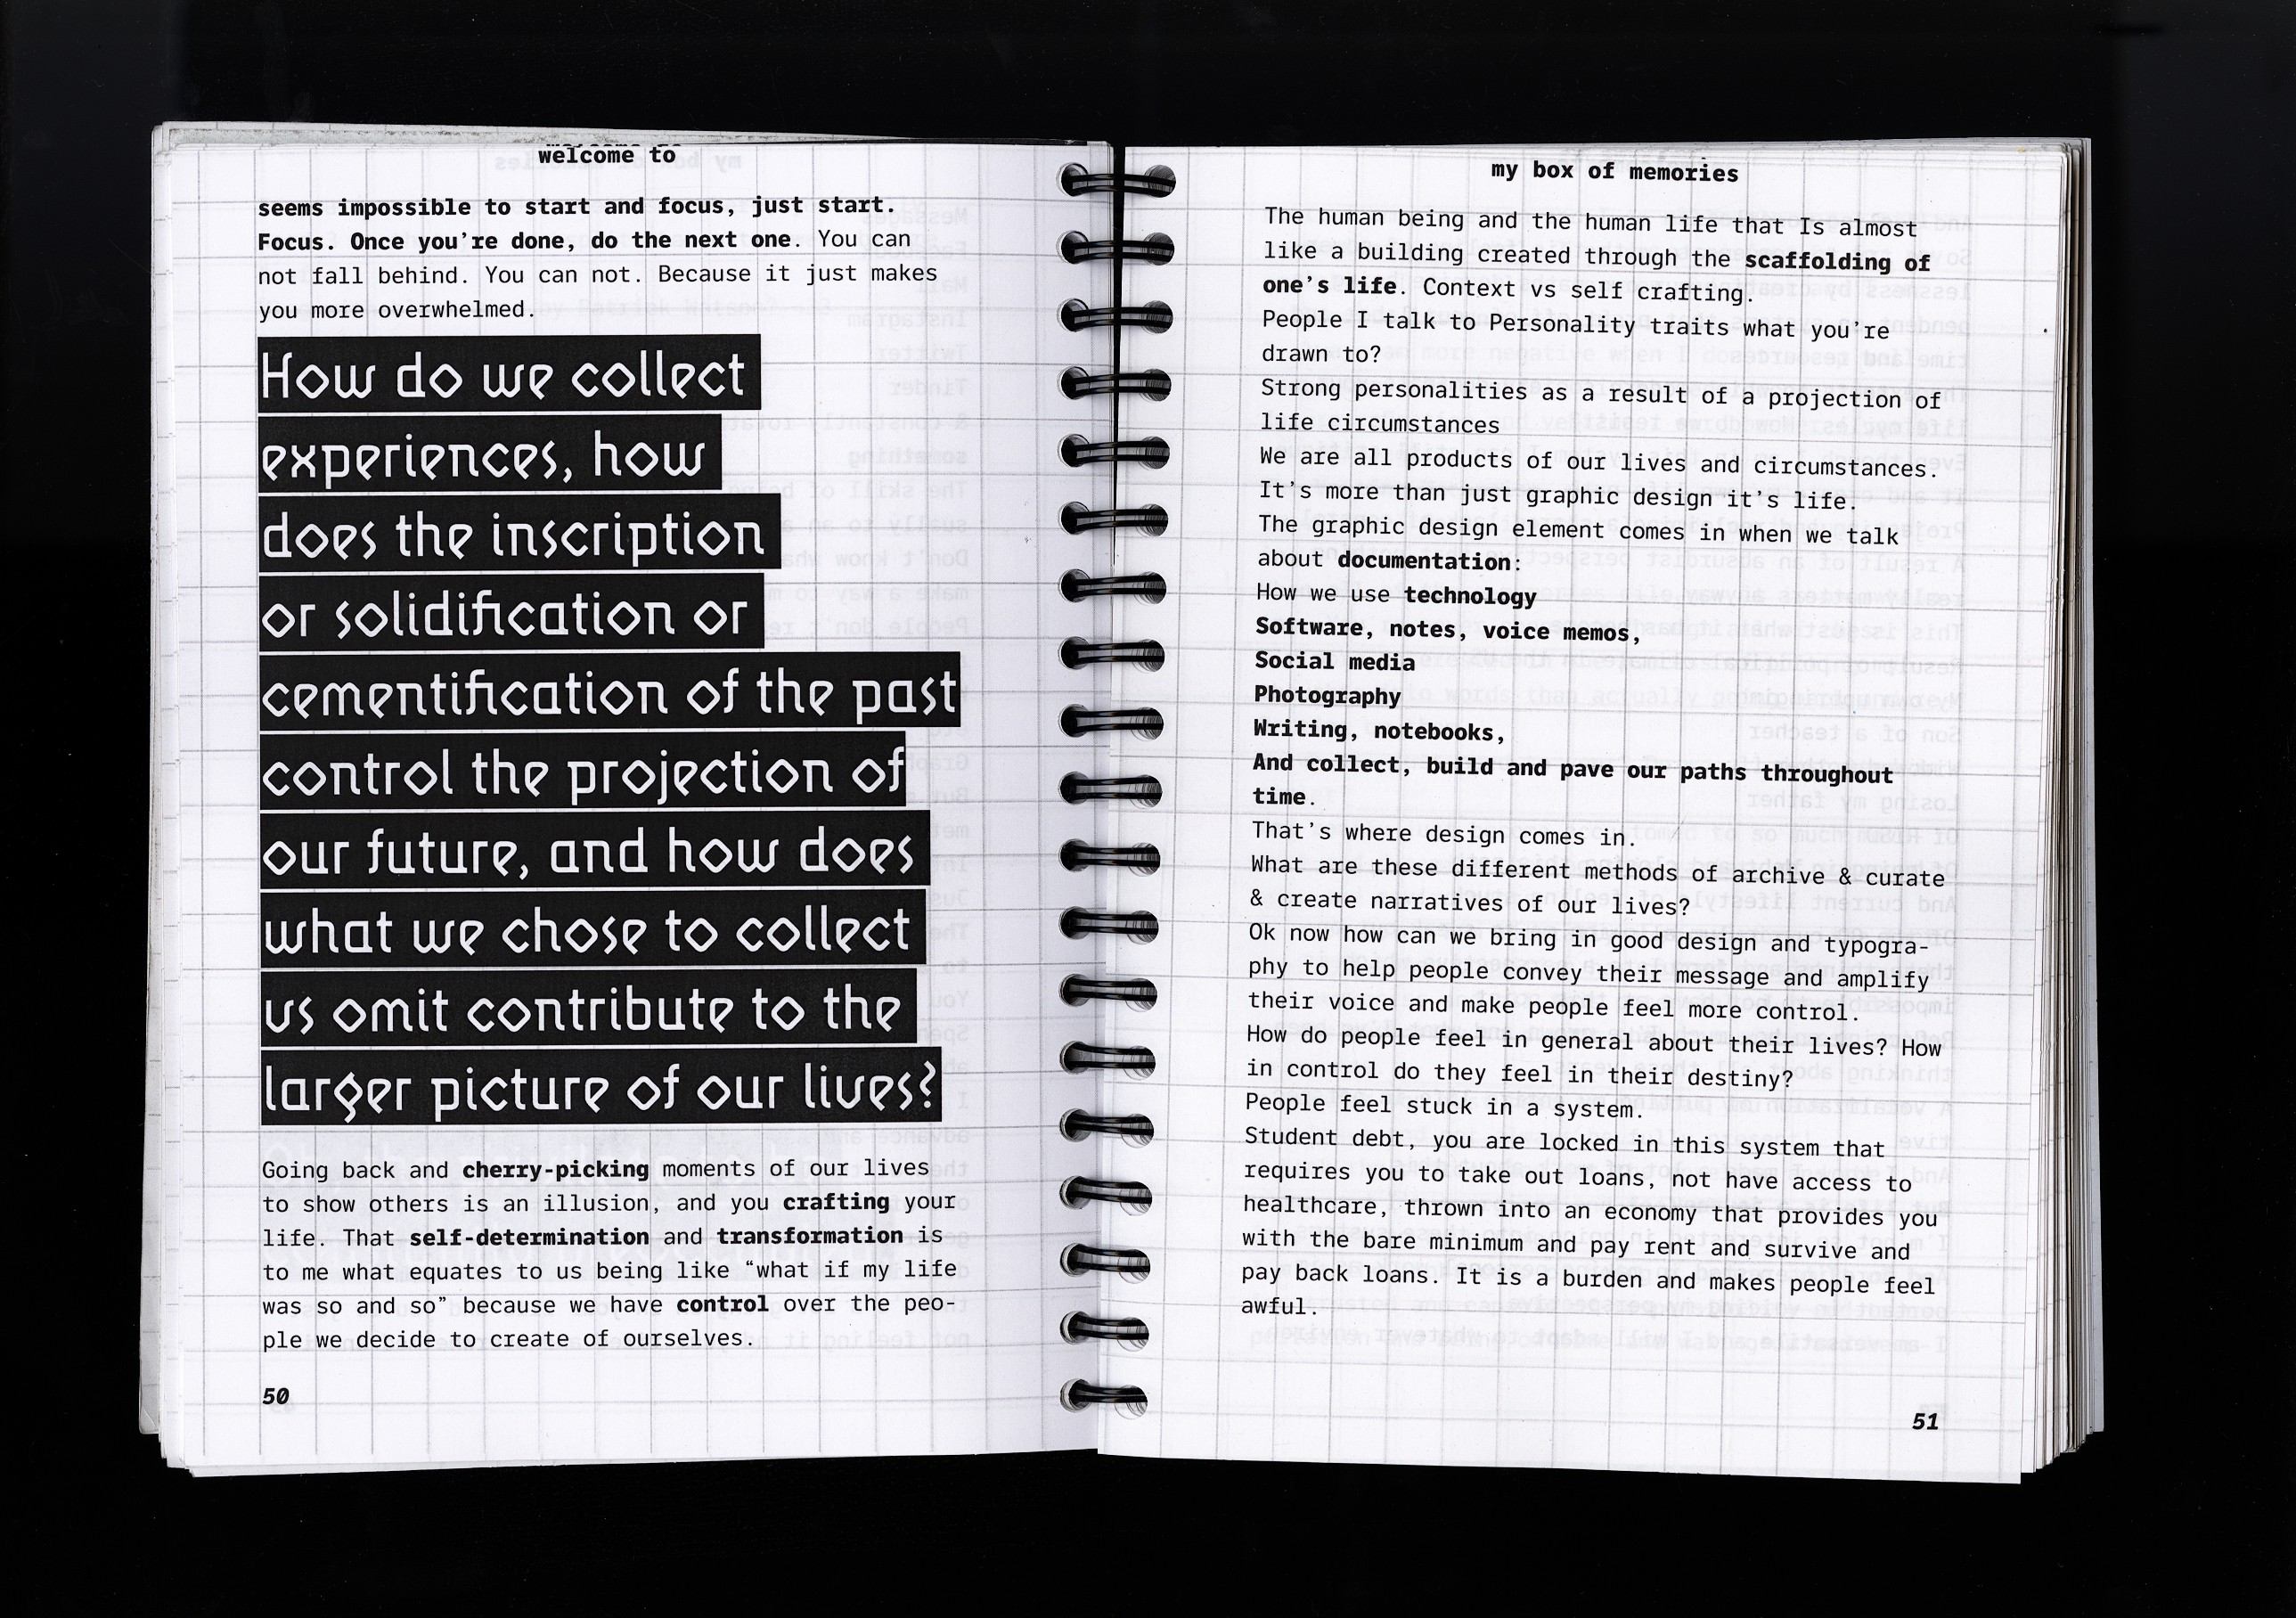 welcome to
seems impossible to start and focus, just start.
Focus. Once you’re done, do the next one. You can
not fall behind. You can not. Because it just makes
you more overwhelmed.
How do we collect
experiences, how
does the inscription
or solidification or
cementification of the past
control the projection of
our future, and how does
what we chose to collect
us omit contribute to the
larger picture of our lives?
Going back and cherry-picking moments of our lives
to show others is an illusion, and you crafting your
life. That self-determination and transformation is
to me what equates to us being like “what if my life
was so and so” because we have control over the peo-
ple we decide to create of ourselves.
50
my box of memories
The human being and the human life that Is almost
like a building created through the scaffolding of
one’s life. Context vs self crafting.
People I talk to Personality traits what you’re
drawn to?
Strong personalities as a result of a projection of
life circumstances
We are all products of our lives and circumstances.
It’s more than just graphic design it’s life.
The graphic design element comes in when we talk
about documentation:
How we use technology
Software, notes, voice memos,
Social media
Photography
Writing, notebooks,
And collect, build and pave our paths throughout
time.
That’s where design comes in.
What are these different methods of archive & curate
& create narratives of our lives?
Ok now how can we bring in good design and typogra-
phy to help people convey their message and amplify
their voice and make people feel more control.
How do people feel in general about their lives? How
in control do they feel in their destiny?
People feel stuck in a system.
Student debt, you are locked in this system that
requires you to take out loans, not have access to
healthcare, thrown into an economy that provides you
with the bare minimum and pay rent and survive and
pay back loans. It is a burden and makes people feel
awful.
51